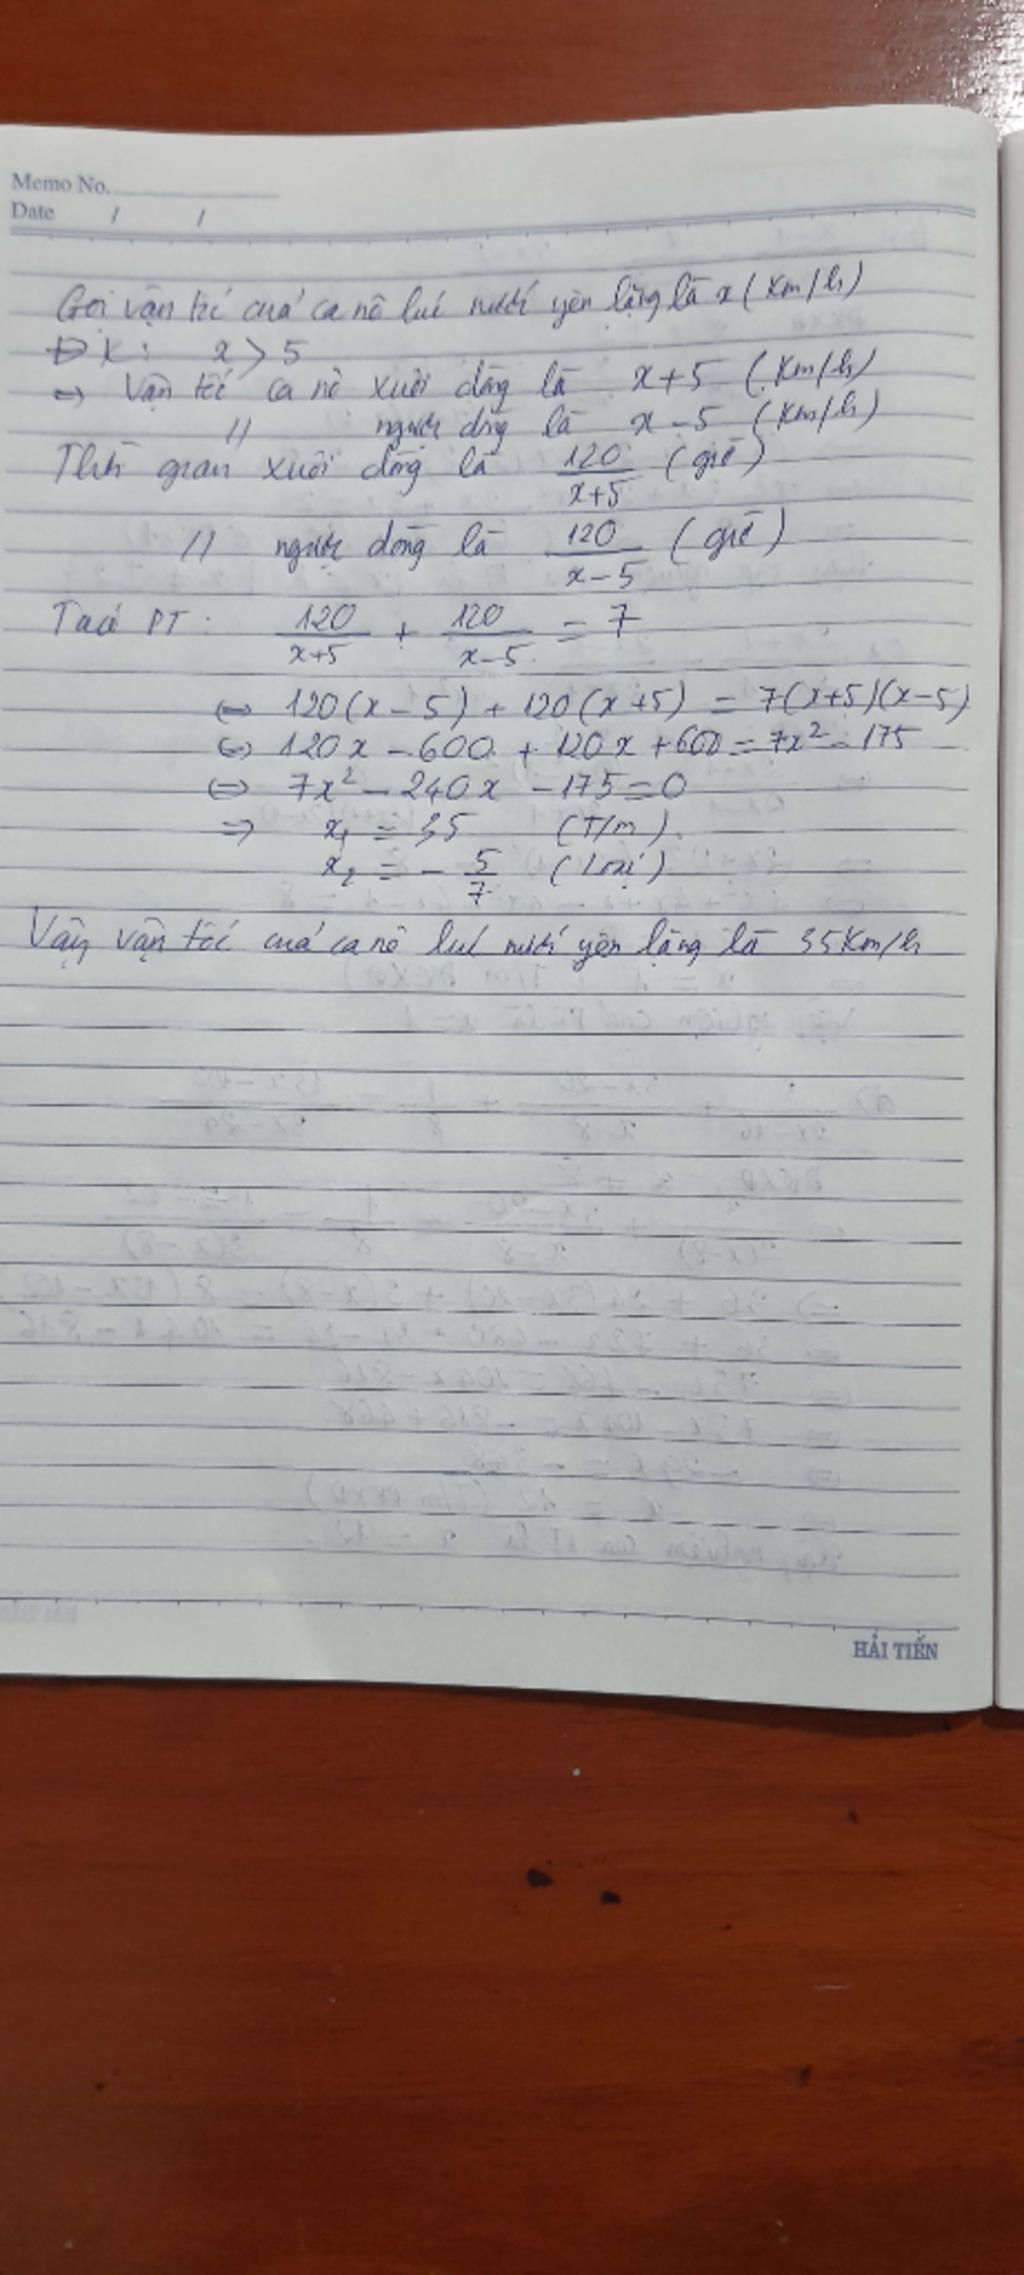 Memo No.
Date / /
Gọi vận tốc của ca nô lúc nước yên lặng là x (Km/h)
ĐK: x > 5
=> Vận tốc ca nô xuôi dòng là x+5 (Km/h)
// ngược dòng là x-5 (Km/h)
Thời gian xuôi dòng là 120/(x+5) (giờ)
// ngược dòng là 120/(x-5) (giờ)
Ta có PT: 120/(x+5) + 120/(x-5) = 7
<=> 120(x-5) + 120(x+5) = 7(x+5)(x-5)
<=> 120x - 600 + 120x + 600 = 7x² - 175
<=> 7x² - 240x - 175 = 0
=> x₁ = 35 (T/m)
x₂ = - 5/7 (Loại)
Vậy vận tốc của ca nô lúc nước yên lặng là 35 Km/h
HẢI TIẾN